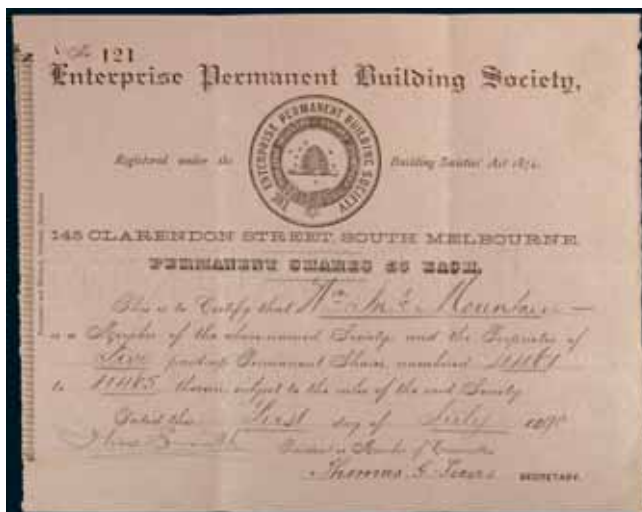 No 121
Enterprise Permanent Building Society,
THE ENTERPRISE PERMANENT BUILDING SOCIETY
Registered under the Building Societies' Act 1874.
145 CLARENDON STREET SOUTH MELBOURNE
PERMANENT SHARES £5 EACH.
This is to Certify that Wm Mc Mountain
is a Member of the above-named Society and the Proprietor of
Five paid-up Permanent Shares, numbered 11481
to 11485 therein subject to the rules of the said Society
Dated this First day of July 1890
President or Member of Committee
Thomas G. SECRETARY.